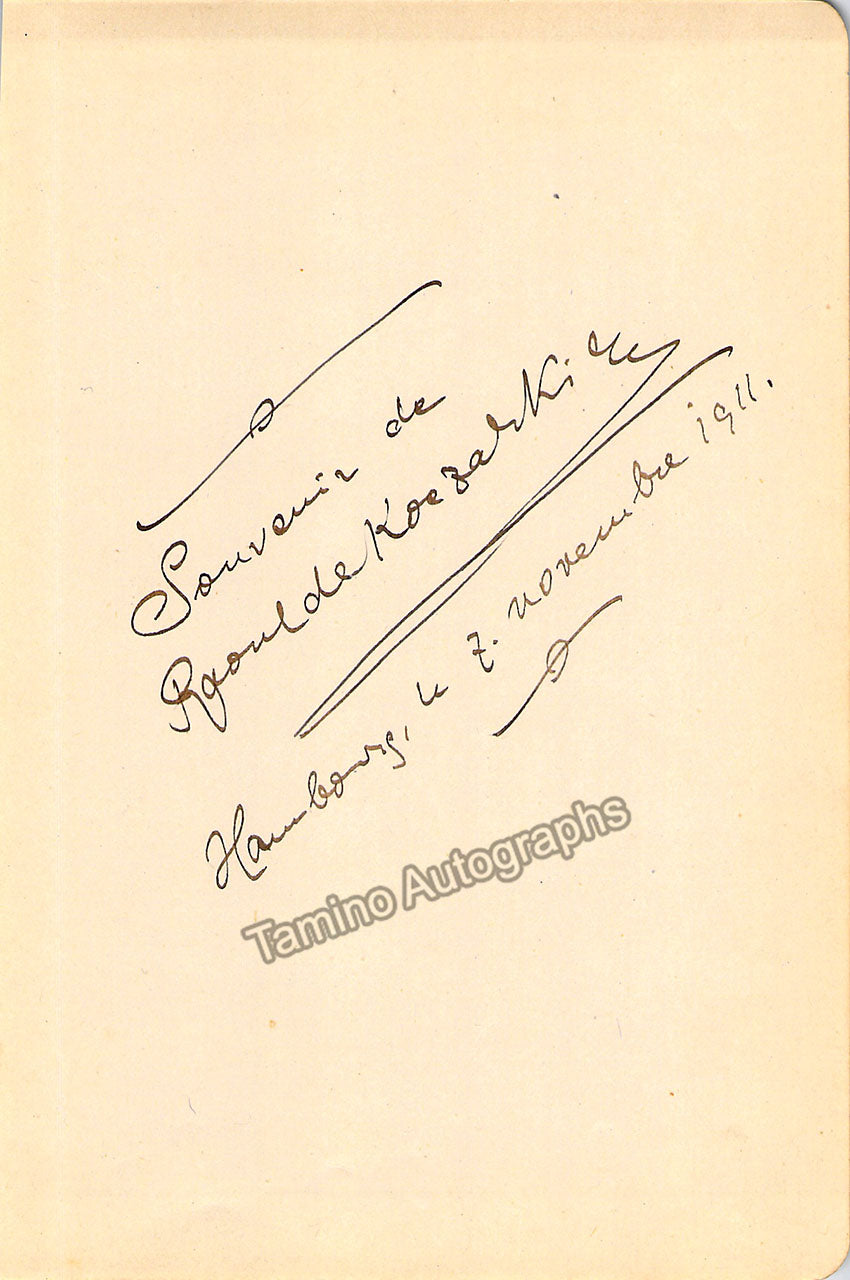 Souvenir de
Raoul de Koczalski
Hambourg, le 7. novembre 1911.
Tamino Autographs